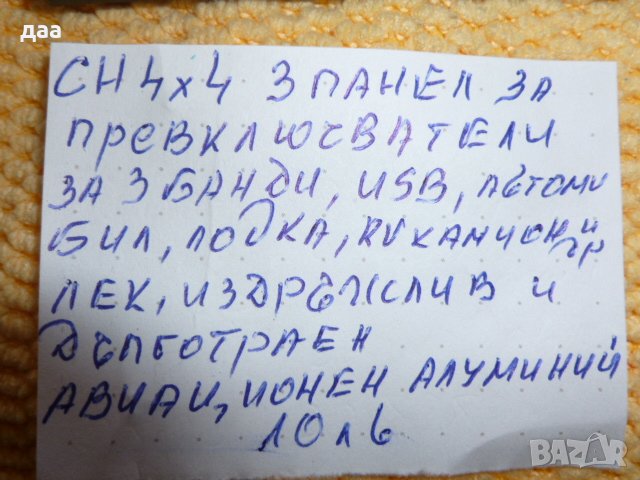 даа
СН 4х4 3 ПАНЕЛ ЗА
ПРЕВКЛЮЧВАТЕЛИ
ЗА 3 БАНДИ, USB, АВТОМО
БИЛ, ЛОДКА, RV КАМИОН И ДР
ЛЕК, ИЗДРЪЖЛИВ И
ДЪЛГОТРАЕН
АВИАЦИОНЕН АЛУМИНИЙ
10 лв
BAZAR